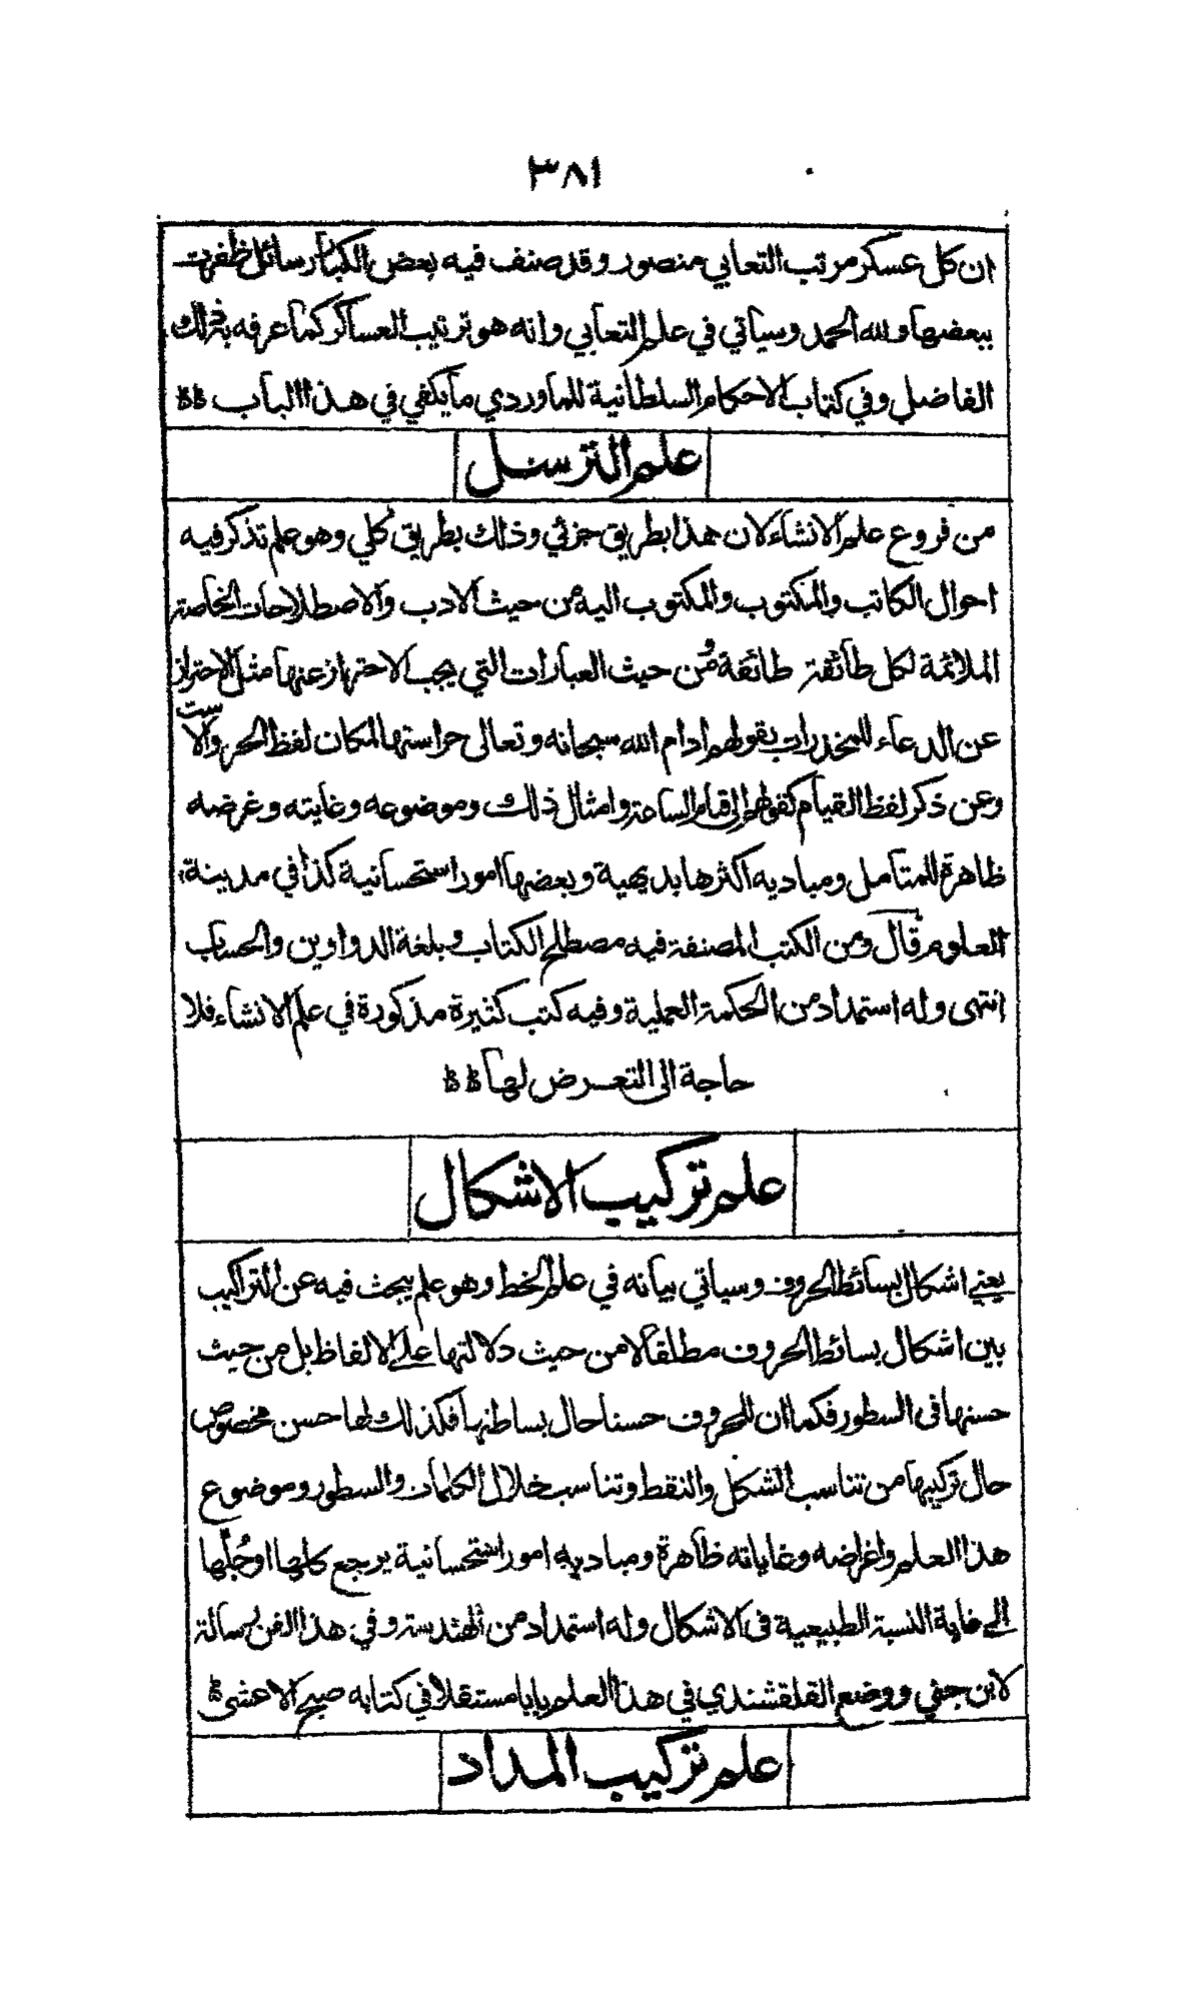 ٣٨١
ان كل عسكر مرتب التعابي منصور وقد صنف فيه بعض الكبار رسائل ظفرت
ببعضها ولله الحمد وسياتي في علم التعابي وانه هو ترتيب العساكر كما عرفه بذلك
الفاضل وفي كتاب الاحكام السلطانية للماوردي ما يكفي في هذا الباب
علم الترسل
من فروع علم الانشاء لان هذا بطريق جزئي وذلك بطريق كلي وهو علم تذكر فيه
احوال الكاتب والمكتوب والمكتوب اليه من حيث الادب والاصطلاحات الخاصة
الملائمة لكل طائفة طائفة ومن حيث العبارات التي يجب الاحتراز عنها مثل الاحتراز
عن الدعاء للمخدرات بقولهم ادام الله سبحانه وتعالى حراستها لمكان لفظ الحر والاست
وعن ذكر لفظ القيام كقولهم الى قيام الساعة وامثال ذلك وموضوعه وغايته وغرضه
ظاهرة للمتامل ومباديه اكثرها بديهية وبعضها امور استحسانية كذا في مدينة
العلوم قال ومن الكتب المصنفة فيه مصطلح الكتاب وبلغة الدواوين والحساب
انتهى وله استمداد من الحكمة العملية وفيه كتب كثيرة مذكورة في علم الانشاء فلا
حاجة الى التعرض لها
علم تركيب الاشكال
يعني اشكال بسائط الحروف وسياتي بيانه في علم الخط وهو علم يبحث فيه عن التراكيب
بين اشكال بسائط الحروف مطلقا لا من حيث دلالتها على الالفاظ بل من حيث
حسنها في السطور فكما ان للحروف حسنا حال بساطتها فكذلك لها حسن مخصوص
حال تركيبها من تناسب الشكل والنقط وتناسب خلال الكلمات والسطور وموضوع
هذا العلم واغراضه وغاياته ظاهرة ومباديه امور استحسانية يرجع كلها او جُلّها
الى غاية النسبة الطبيعية في الاشكال وله استمداد من الهندسة وفي هذا الفن رسالة
لابن جني ووضع القلقشندي في هذا العلم بابا مستقلا في كتابه صبح الاعشى
علم تركيب المداد